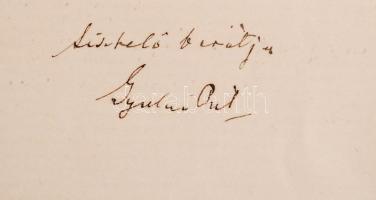 tisztelő barátja
Gyulai Pál